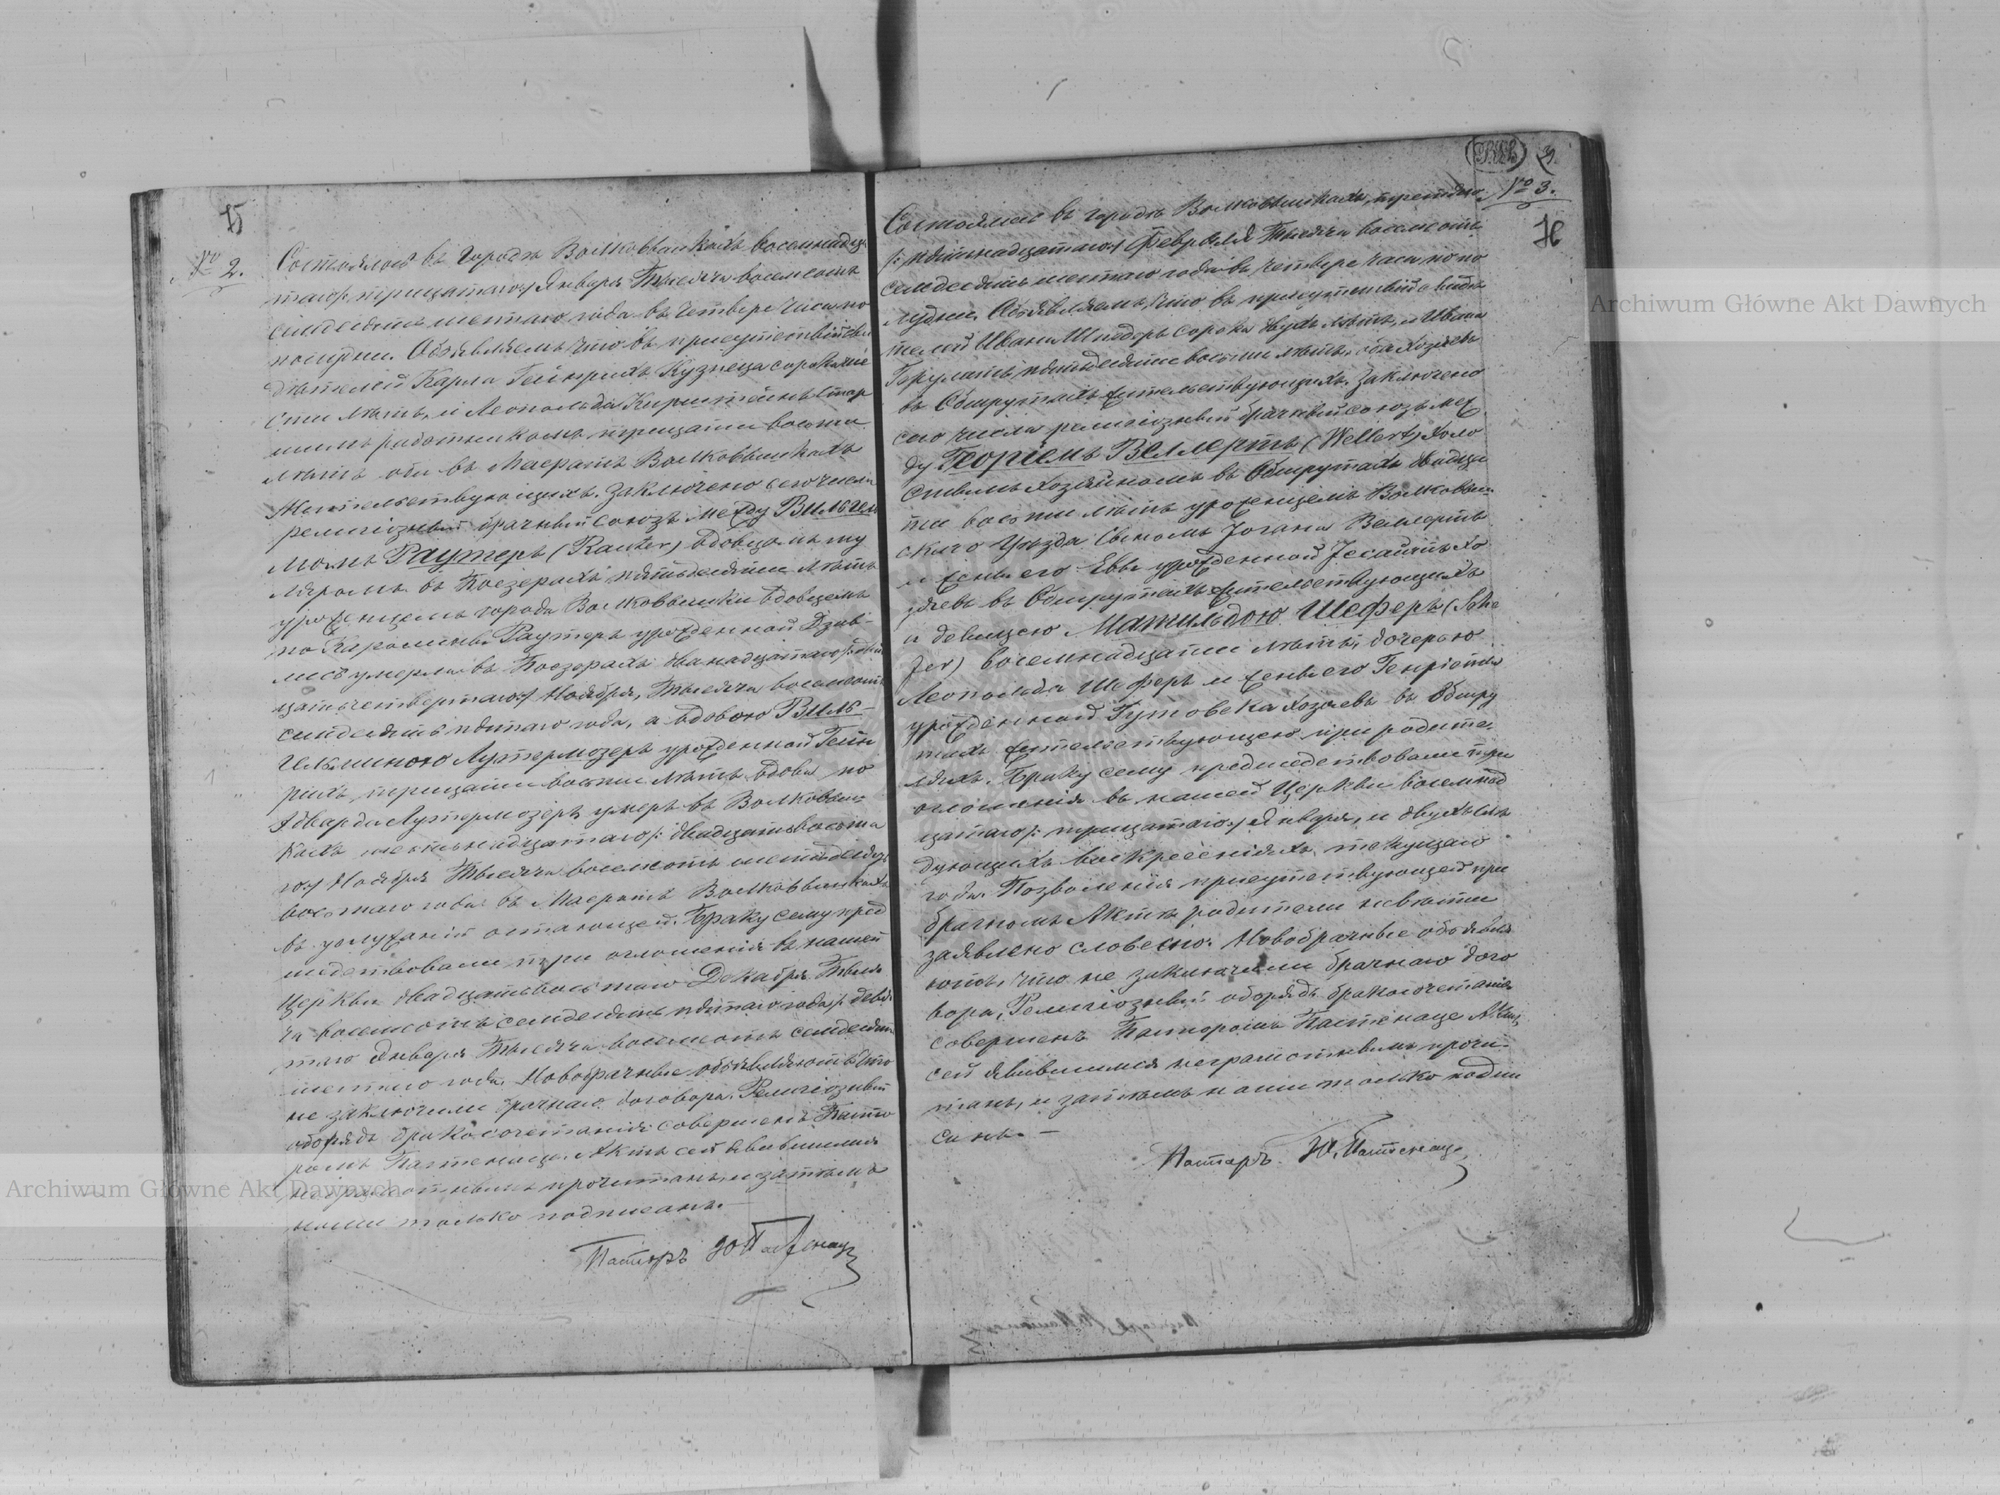 15
№ 2.
Состоялось въ городѣ Волковышкахъ восемнадца
таго /: тридцатаго:/ Января Тысяча восемсотъ
семдесятъ шестаго года въ четвере часа по
полудни. Объявляемъ что въ присутствіи сви
дѣтелей Карла Гейнрихъ Кузнеца сорока ше
сти лѣтъ, и Леопольда Кирштейнъ стар
шимъ работникомъ тридцати восьми
лѣтъ оба въ Маератѣ Волковышкахъ
жительствующихъ. Заключено сего числа
религіозный брачный союзъ между Вильгель
момъ Раутеръ (Rauter) вдовцомъ
въ Поезерахъ пятьдесяти лѣтъ
урожденцемъ города Волковышки вдовцемъ
по Каролинѣ Раутеръ урожденной
умерла въ Поезерахъ двенадцатаго /: двад
цать четвертаго:/ Ноября, Тысяча восемсотъ
семдесятъ пятаго года, а вдовою Виль-
гельминою Лутермозеръ урожденной Гейн
рихъ, тридцати восьми лѣтъ вдова по
Эдварда Лутермозеръ умеръ въ Волковыш
кахъ шестьнадцатаго /: двадцать восьма
го:/ Ноября Тысяча восемсотъ шестьдесятъ
восьмаго года въ Маератѣ Волковышкахъ
въ услуженіи остающей. Браку сему пред
шествовали три оглошенія въ нашей
Церкви двадцать восьмаго Декабря Тыся
ча восемсотъ семдесятъ пятаго года /: девя
таго Января Тысяча восемсотъ семдесятъ
шестаго года. Новобрачные объявляютъ что
не заключили брачнаго договора. Религіозный
обрядъ бракосочетанія совершенъ Пасто
ромъ Пастенаце. Актъ сей явившимся
неграмотнымъ прочитанъ и затѣмъ
нами только подписанъ.-
Пасторъ Ю Пастенаце
3.
№ 3.
16
Состоялось въ городѣ Волковышкахъ, третьяго
/: пятьнадцатаго:/ Февраля Тысяча восемсотъ
семдесятъ шестаго года въ четвере часа по по
лудни, Объявляемъ, что въ присутствіи свидѣ
телей Ивана Шнидеръ сорока двухъ лѣтъ, и Ивана
пятьдесяти восьми лѣтъ, оба Хозяевъ
въ Обшрутахъ жительствующихъ. Заключено
сего числа религіозный брачный союзъ меж
ду Георгіемъ Веллертъ (Wellert) холо
стымъ хозяиномъ въ Обшрутахъ двадца
ти восьми лѣтъ урожденцемъ Волковыш
скаго Уѣзда сыномъ Іогана Веллертъ
и жены его Евы урожденной Іесайтисъ хо
зяевъ въ Обшрутахъ жительствующихъ
и девицею Матильдою Шеферъ (Sche
fer) восемнадцати лѣтъ, дочерью
Леопольда Шеферъ и жены его Генріэты
урожденной Гутовска хозяевъ въ Обшру
тахъ жительствующею при родите
ляхъ. Браку сему предшедствовали три
оглошенія въ нашей Церкви восемнад
цатаго /: тридцатаго:/ Января, и двухъ слѣ
дующихъ Воскресеніяхъ текущаго
года. Позволенія присутствующей при
брачномъ Актѣ родители невѣсты
заявлено словесно. Новобрачные объявля
ютъ, что не заключили брачнаго дого
вора, Религіозный обрядъ бракосочетанія
совершенъ Пасторомъ Пастенаце Актъ
сей явившимся неграмотнымъ прочи-
танъ, и затѣмъ нами только подпи
санъ.-
Пасторъ Ю. Пастенаце
Archiwum Główne Akt Dawnych
Archiwum Główne Akt Dawnych